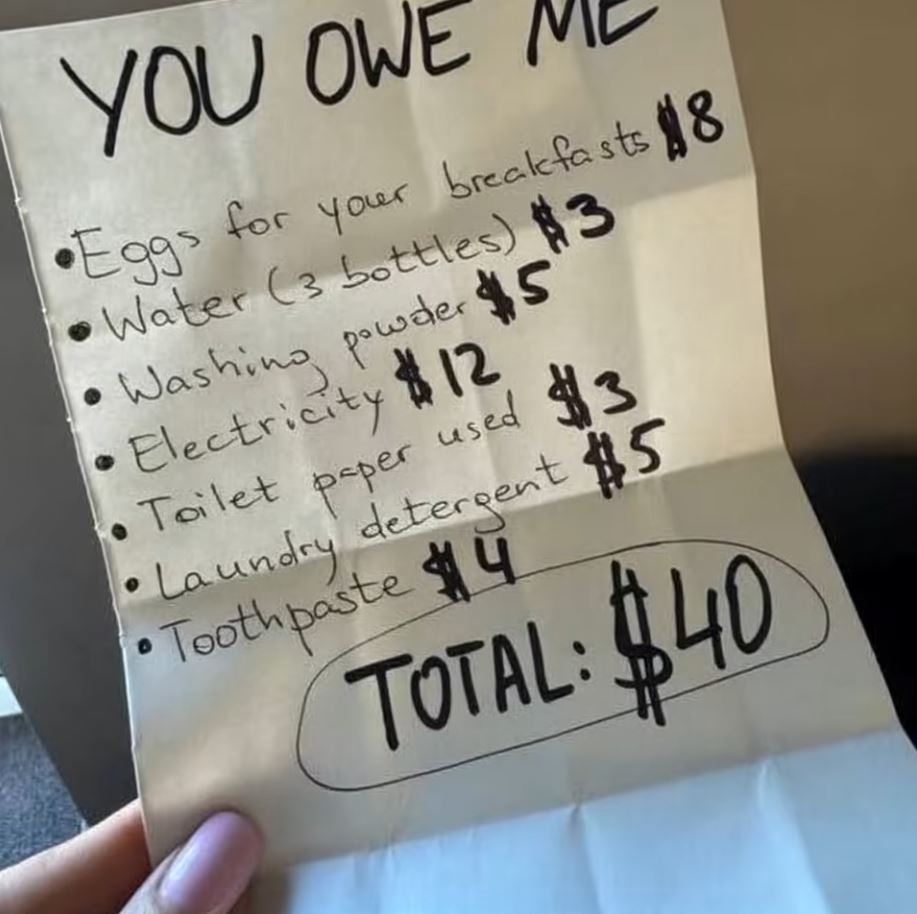 YOU OWE ME
• Eggs for your breakfasts $8
• Water (3 bottles) $3
• Washing powder $5
• Electricity $12
• Toilet paper used $3
• Laundry detergent $5
• Toothpaste $4
TOTAL: $40